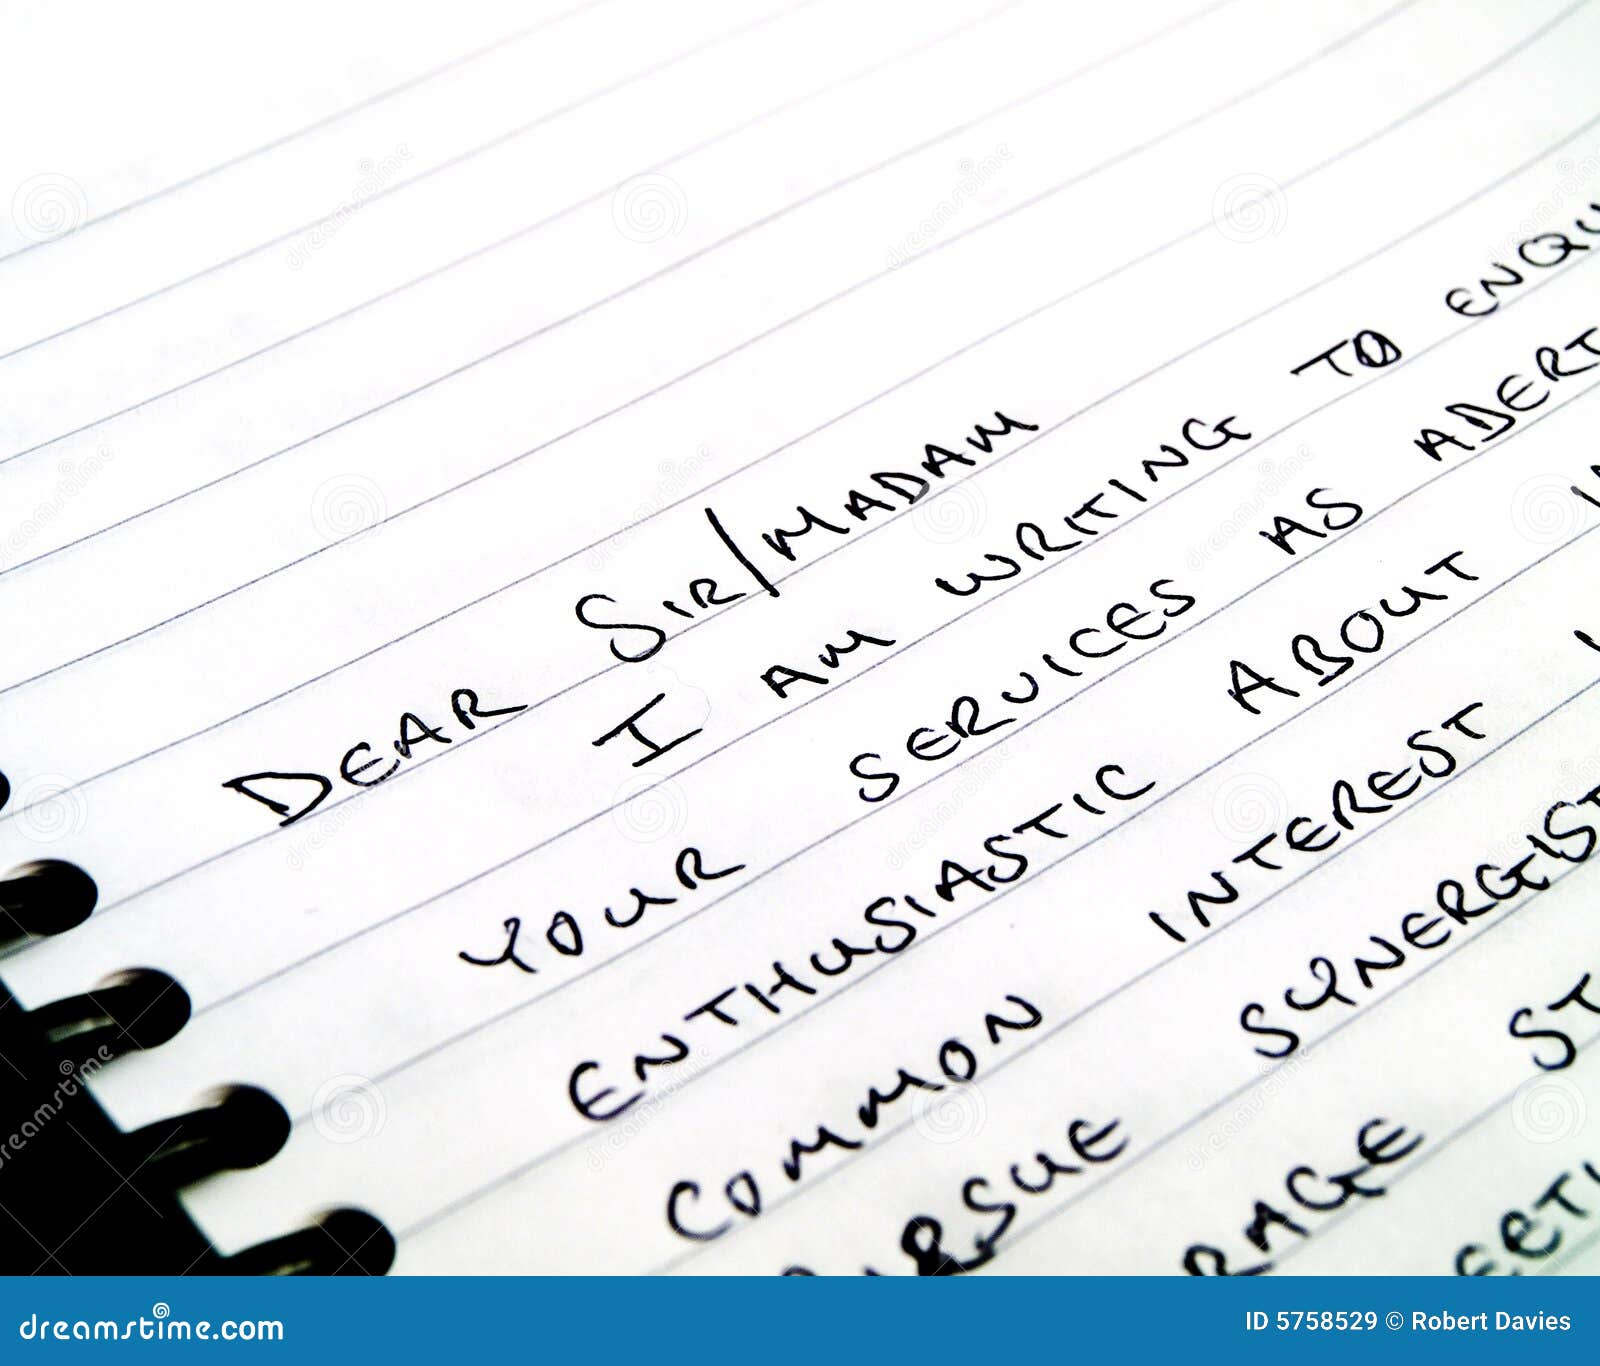 DEAR SIR/MADAM
I AM WRITING TO ENQU
YOUR SERVICES AS ADERT
ENTHUSIASTIC ABOUT
COMMON INTEREST
SYNERGIST
RAGE ST
dreamstime.com ID 5758529 © Robert Davies